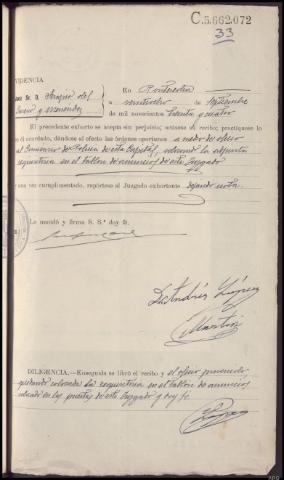 C.5.662.072
33
VIDENCIA
Juez Sr. D.
En Pontevedra
a veintiocho de Septiembre
de mil novecientos treinta y cuatro
El precedente exhorto se acepta sin perjuicio; acúsese su recibo; practíquese lo
acordado, dándose al efecto las órdenes oportunas a medio de oficio
al Comisario de Policía de esta Capital, colocando la adjunta
requisitoria en el tablón de anuncios de este Juzgado
una vez cumplimentado, repórtese al Juzgado exhortante dejando nota.
Lo mandó y firma S. S.ª doy fe.
Andrés López
Martín
DILIGENCIA.—Enseguida se libró el recibo y el oficio prevenido
quedando colocada la requisitoria en el tablón de anuncios
de este Juzgado y doy fe.
López